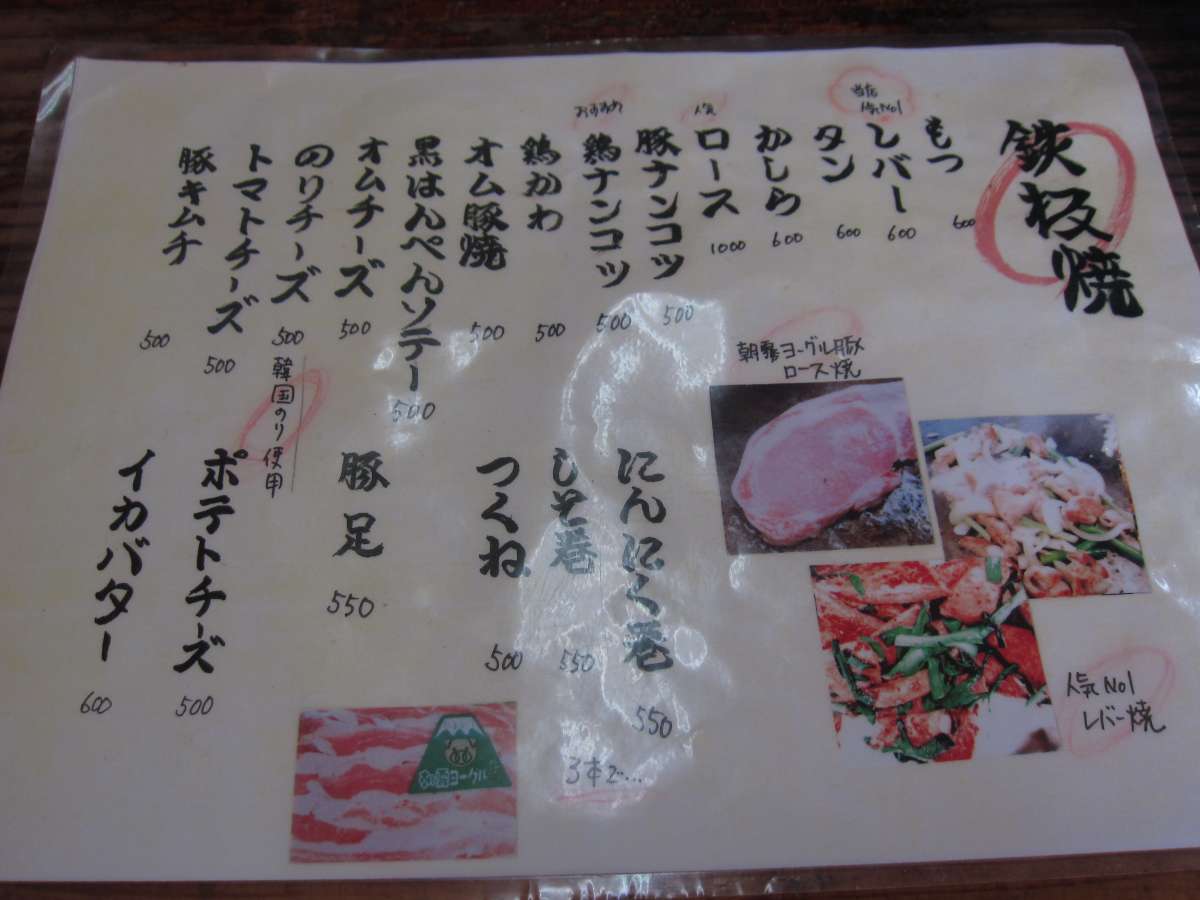 鉄板焼
もつ
600
当店
人気No1
レバー
600
タン
600
かしら
600
人気
ロース
1000
豚ナンコツ
500
おすすめ
鶏ナンコツ
500
鶏かわ
500
オム豚焼
500
黒はんぺんソテー
500
オムチーズ
500
のりチーズ
500
韓国のり使用
トマトチーズ
500
豚キムチ
500
にんにく巻
550
しそ巻
550
つくね
500
3本で…
豚足
550
ポテトチーズ
500
イカバター
600
朝霧ヨーグル豚
ロース焼
人気No1
レバー焼
朝霧ヨーグル